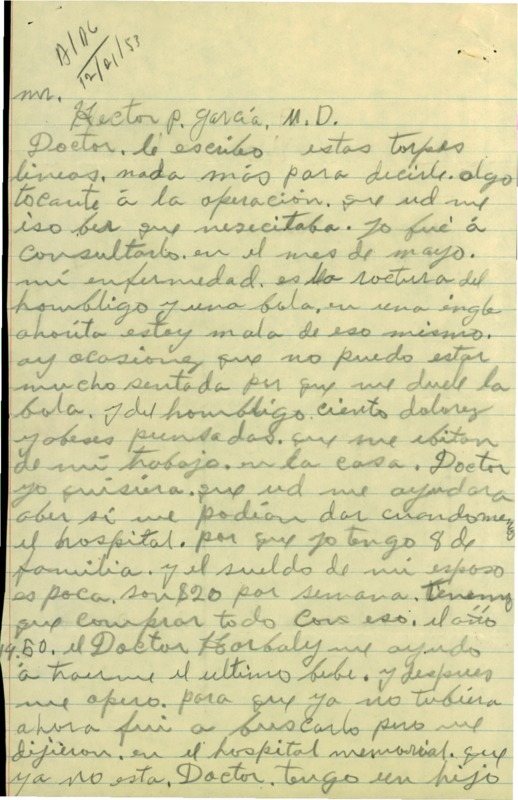 A/Ab
12/21/53
mr.
Hector P. García, M.D.
Doctor. le escribo estas torpes
lineas. nada más para decirle. algo
tocante á la operación. que ud me
iso ber que nesecitaba. Yo fué á
consultarlo. en el mes de mayo.
mi enfermedad. es la roctura del
hombligo y una bola, en una ingle
ahorita estoy mala de eso mismo.
ay ocasiones que no puedo estar
mucho sentada por que me duele la
bola. y del hombligo. ciento dolorez
y abeses punsadas. que me ebitan
de mi trabajo. en la casa. Doctor
yo quisiera. que ud me ayudara
aber si me podian dar cuando menos
el hospital. por que yo tengo 8 de
familia. y el sueldo de mi esposo
es poca. son $20 por semana. tenemos
que comprar todo con eso. el año
50. el Doctor me ayudo
á traerme el ultimo bebe. y despues
me opero. para que ya no tubiera
ahora fui a buscarlo pero me
dijieron. en el hospital memorial. que
ya no esta. Doctor. tengo un hijo